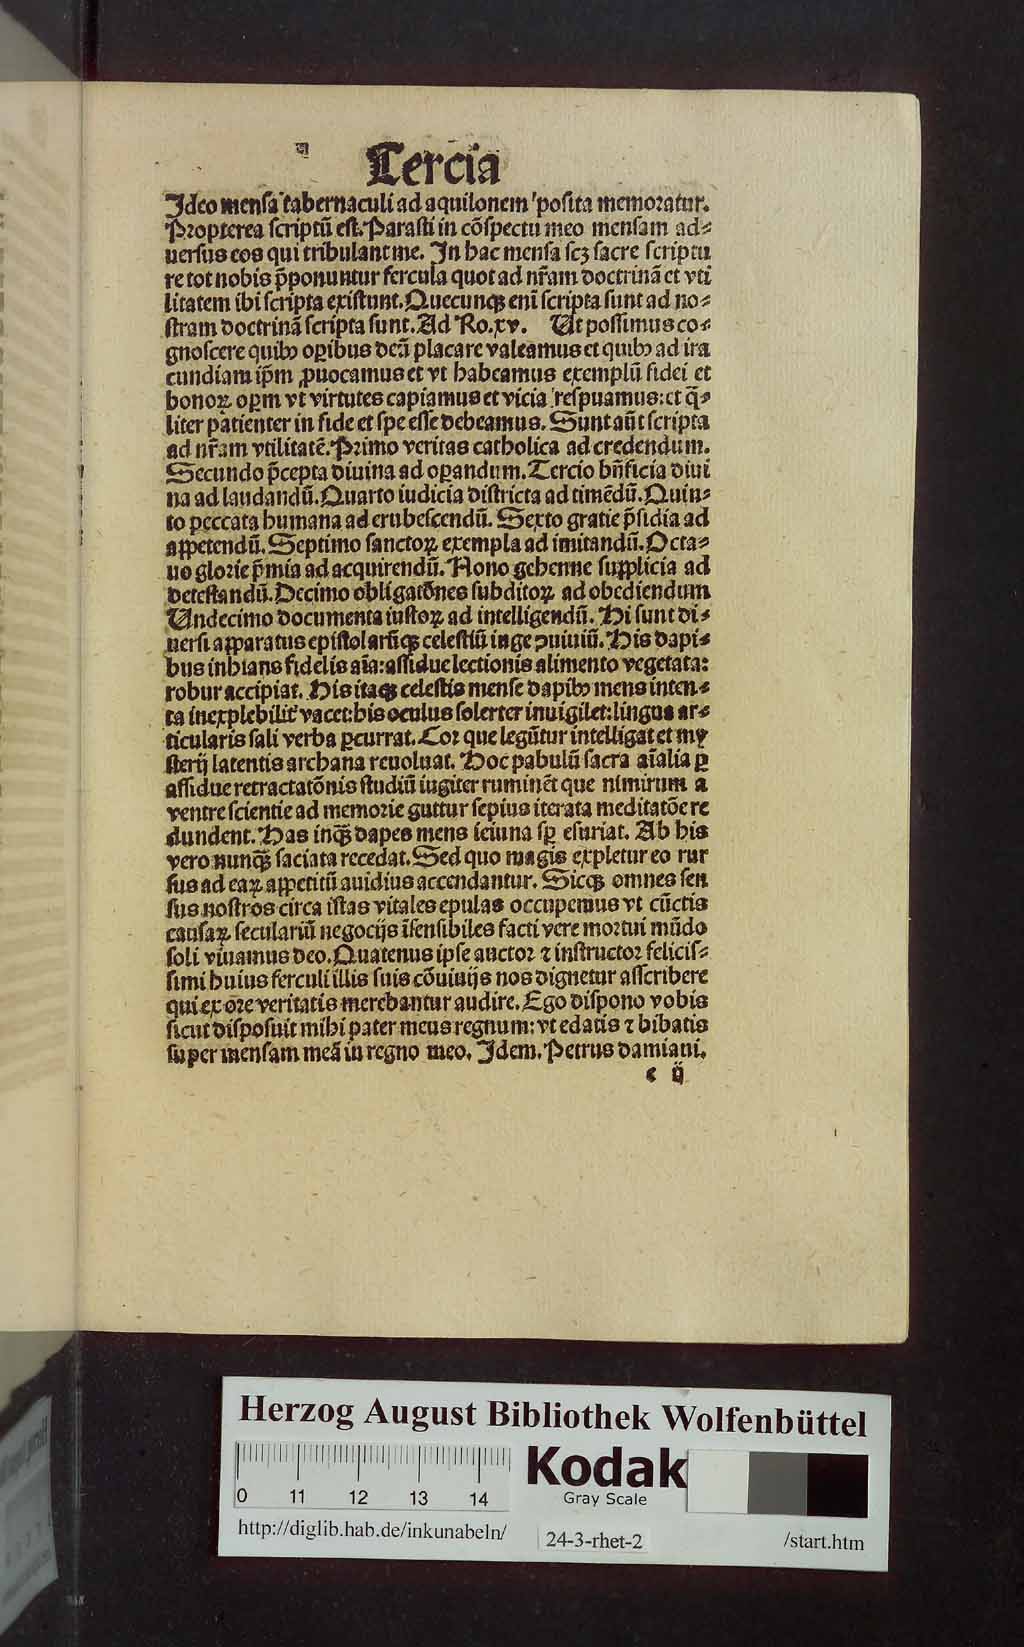 Tercia
Ideo mensa tabernaculi ad aquilonem posita memoratur.
Propterea scriptū est. Parasti in cōspectu meo mensam ad⸗
uersus eos qui tribulant me. In hac mensa scꝫ sacre scriptu
re tot nobis p̄ponuntur fercula quot ad nr̄am doctrinā et vti
litatem ibi scripta existunt. Quecunqꝫ enī scripta sunt ad no⸗
stram doctrinā scripta sunt. Ad Ro.xv. Ut possimus co⸗
gnoscere quibꝰ oꝑibus deū placare valeamus et quibꝰ ad ira
cundiam ip̄m ꝓuocamus et vt habeamus exemplū fidei et
bonoꝝ oꝑm vt virtutes capiamus et vicia respuamus: et q̄⸗
liter patienter in fide et spe esse debeamus. Sunt aūt scripta
ad nr̄am vtilitatē. Primo veritas catholica ad credendum.
Secundo p̄cepta diuina ad oꝑandum. Tercio bn̄ficia diui
na ad laudandū. Quarto iudicia districta ad timēdū. Quin⸗
to peccata humana ad erubescendū. Sexto gratie p̄sidia ad
appetendū. Septimo sanctoꝝ exempla ad imitandū. Octa⸗
uo glorie p̄mia ad acquirendū. Nono gehenne supplicia ad
detestandū. Decimo obligatōnes subditoꝝ ad obediendum
Undecimo documenta iustoꝝ ad intelligendū. Hi sunt di⸗
uersi apparatus epistolarūqꝫ celestiū inge ꝯuiuiū. His dapi⸗
bus inhians fidelis aīa: assidue lectionis alimento vegetata:
robur accipiat. His itaqꝫ celestis mense dapibꝰ mens inten⸗
ta inexplebilit̄ vacet: his oculus solerter inuigilet: lingua ar⸗
ticularis sali verba ꝑcurrat. Cor que legūtur intelligat et my
sterij latentis archana reuoluat. Hoc pabulū sacra aīalia ꝑ
assidue retractatōnis studiū iugiter ruminēt que nimirum a
ventre scientie ad memorie guttur sepius iterata meditatōe re
dundent. Has inqꝫ dapes mens ieiuna sꝑ esuriat. Ab his
vero nunqꝫ saciata recedat. Sed quo magis expletur eo rur
sus ad eaꝝ appetitū auidius accendantur. Sicqꝫ omnes sen
sus nostros circa istas vitales epulas occupemus vt cūctis
causaꝝ seculariū negocijs īsensibiles facti vere mortui mūdo
soli viuamus deo. Quatenus ipse auctor ⁊ instructor felicis⸗
simi huius ferculi illis suis cōuiuijs nos dignetur asscribere
qui ex ōre veritatis merebantur audire. Ego dispono vobis
sicut disposuit mihi pater meus regnum: vt edatis ⁊ bibatis
super mensam meā in regno meo. Idem. Petrus damiani.
c ij
Herzog August Bibliothek Wolfenbüttel
0 11 12 13 14
Kodak
Gray Scale
http://diglib.hab.de/inkunabeln/ 24-3-rhet-2 /start.htm